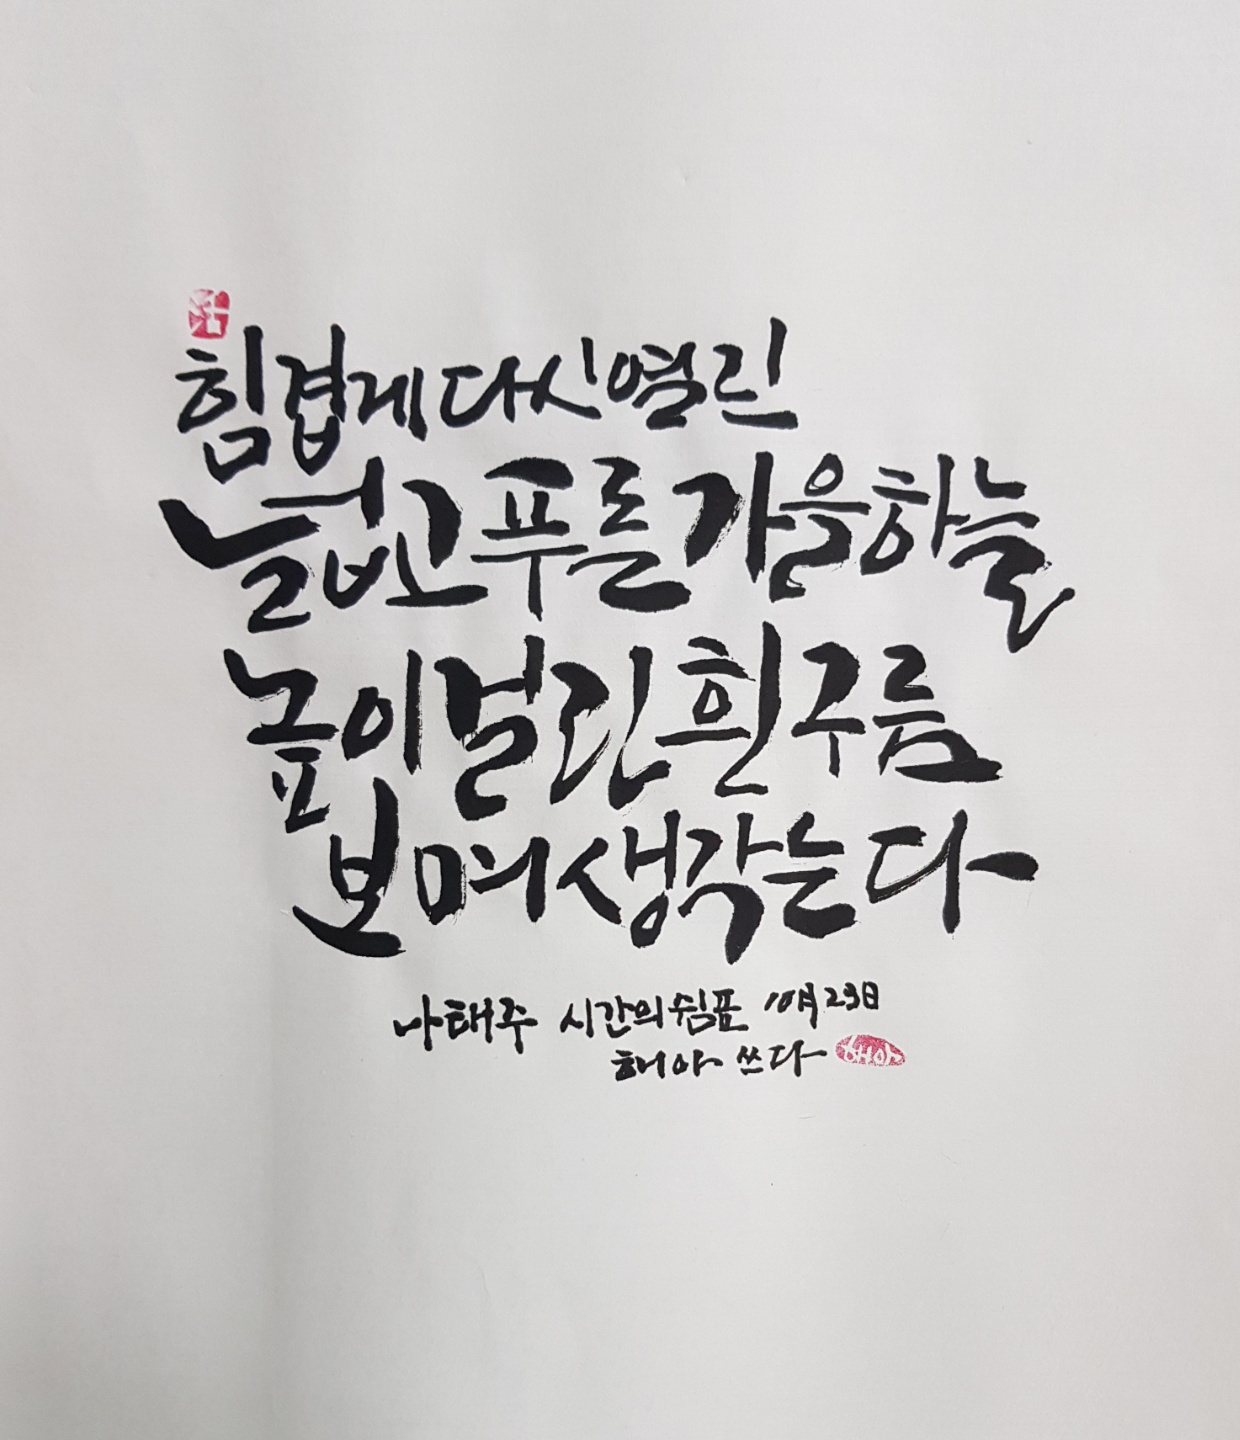 힘겹게 다시 열린
늘업고 푸른 가을 하늘
높이 걸린 흰 구름
보며 생각는다
나태주 시간의 쉼표 10月 29日
해야 쓰다
해야